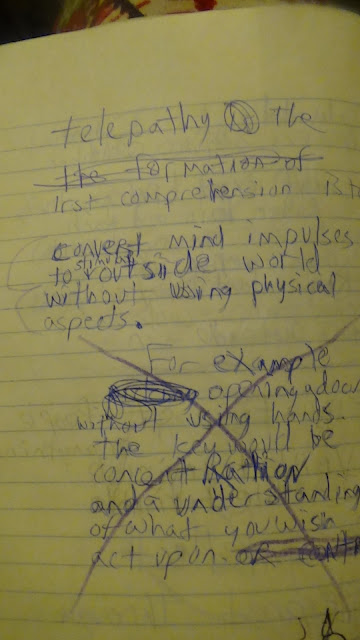 telepathy The
the formation of
1rst comprehension is to
convert mind impulses
to stimuli outside world
without using physical
aspects.
For example
opening a door
without using hands.
the key would be
concentration
and a understanding
of what you wish
act upon. or